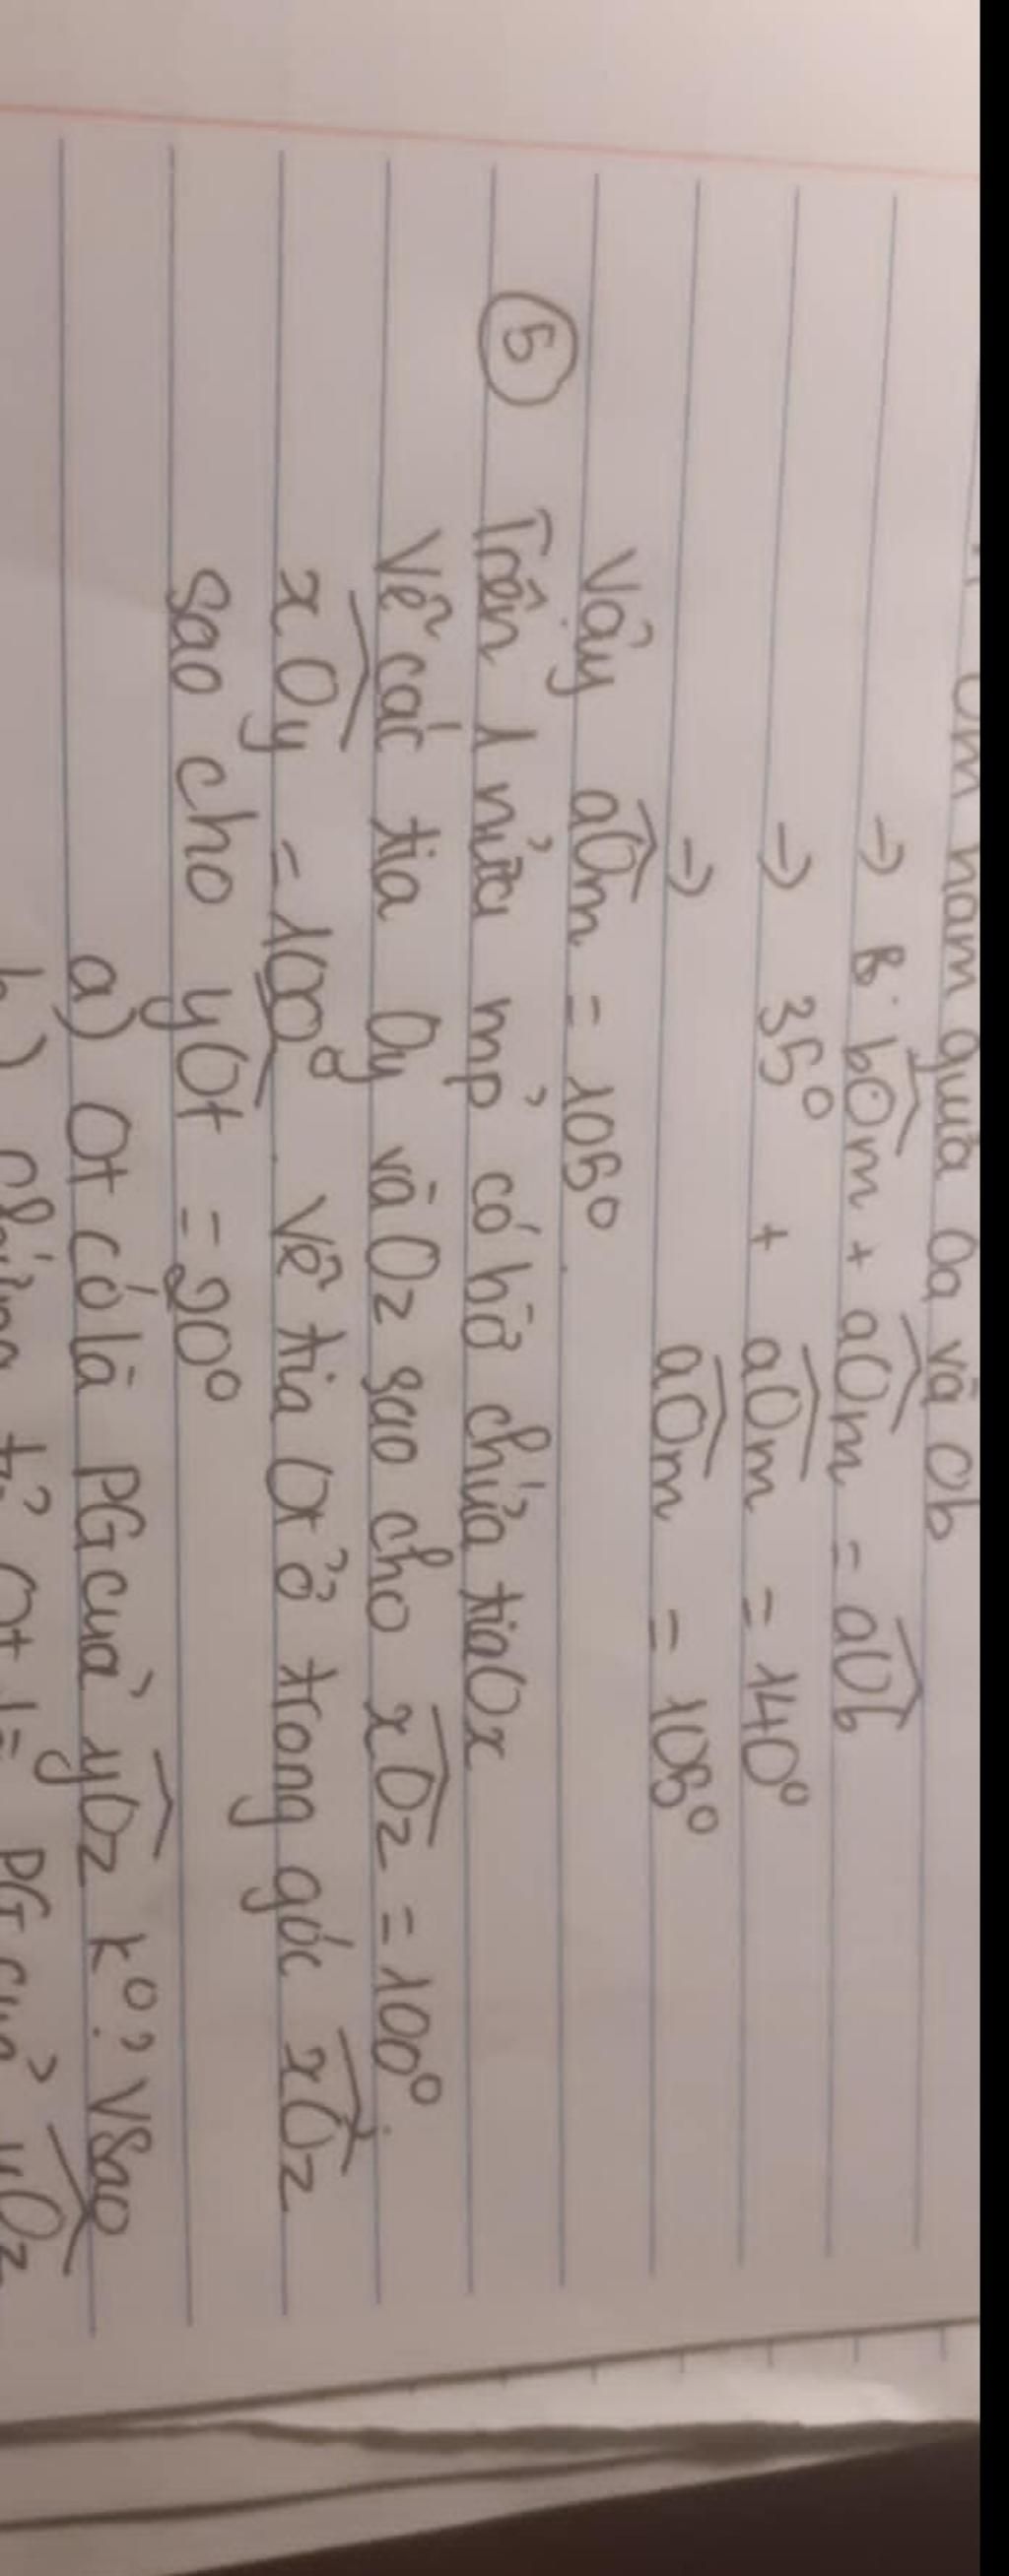 nằm giữa Oa và Ob
→ B: bOm + aOm = aOb
→ 35° + aOm = 140°
→ aOm = 105°
Vậy aOm = 105°.
5 Trên 1 nửa mp có bờ chứa tia Ox
Vẽ các tia Oy và Oz sao cho xOz = 100°.
xOy = 100°. Vẽ tia Ot ở trong góc xOz
sao cho yOt = 20°
a) Ot có là PG của yOz k°? Vsao
b) chứng tỏ Ot là PG của yOz